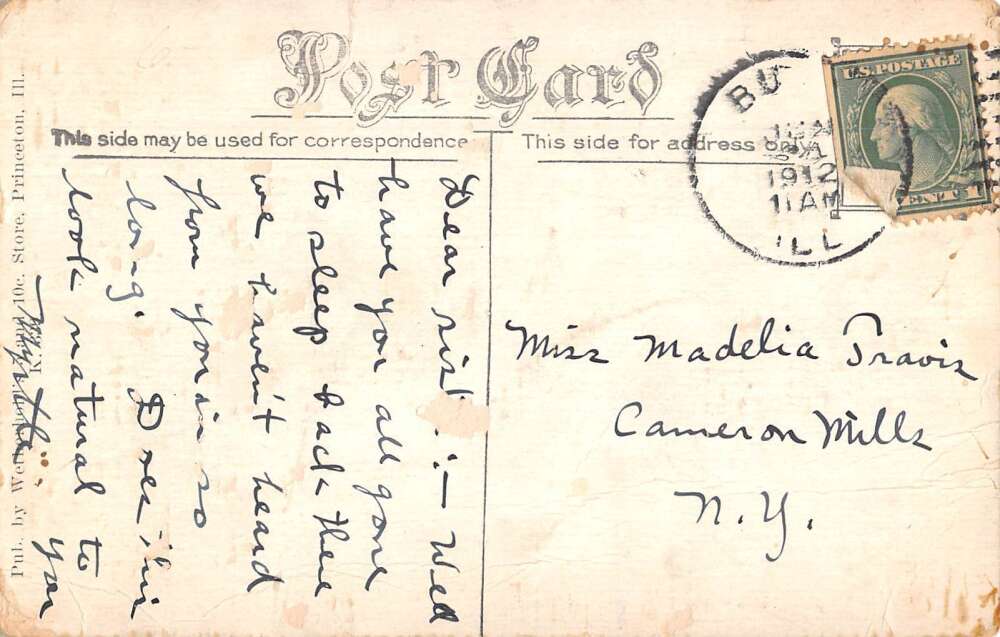 Post Card
This side may be used for correspondence
This side for address only
BU
JUN
1912
11 AM
ILL
U.S. POSTAGE
CENT 1
Dear sist :— Well
have you all gone
to sleep back there
we haven't heard
from you in so
long. Does this
look natural to
you
Miss Madelia Travis
Cameron Mills
N.Y.
10c. Store, Princeton, Ill.
Pub. by